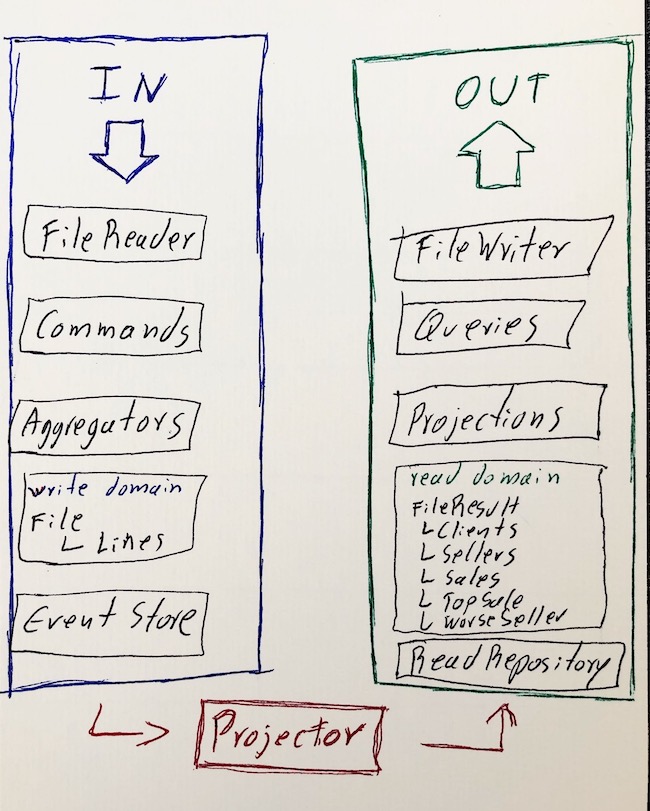 IN
FileReader
Commands
Aggregators
write domain
File
Lines
Event Store
OUT
FileWriter
Queries
Projections
read domain
FileResult
Clients
Sellers
Sales
TopSale
WorseSeller
ReadRepository
Projector